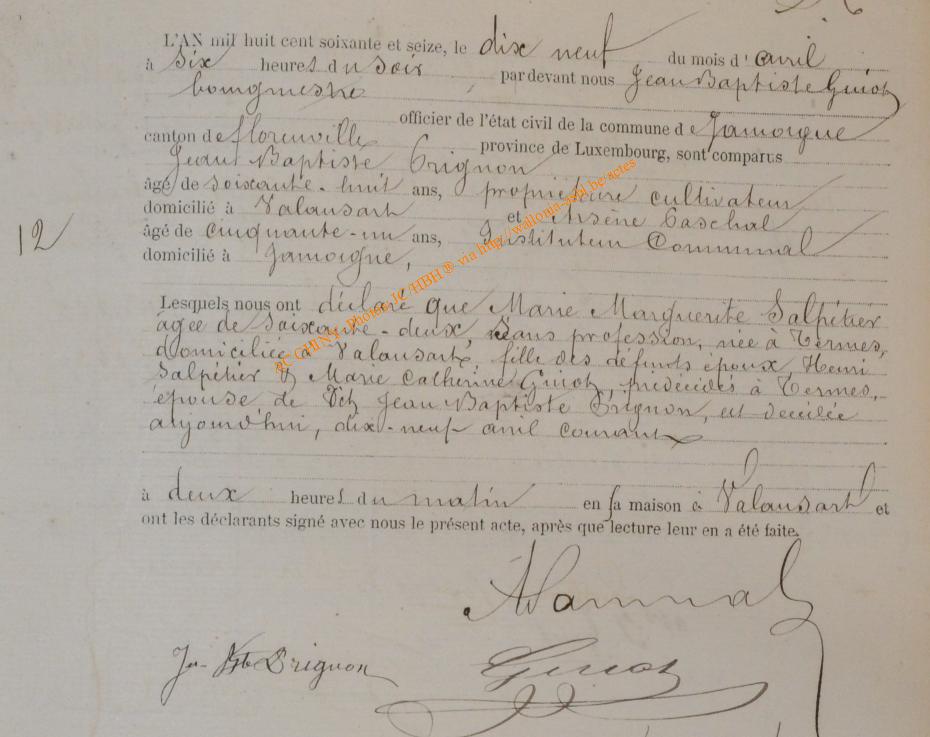 L'AN mil huit cent soixante et seize, le dix neuf du mois d'avril
à six heures du soir, par devant nous Jean Baptiste Guiot
bourgmestre
officier de l'état civil de la commune de Jamoigne
canton de florenville province de Luxembourg, sont comparus
Jean Baptiste Grignon
âgé de soixante-huit ans, propriétaire cultivateur
domicilié à Valansart et Arsène
âgé de cinquante-un ans, Instituteur Communal
domicilié à Jamoigne,
12
Lesquels nous ont déclaré que Marie Marguerite Salpétier
âgée de soixante-deux, sans profession, née à Termes,
domiciliée à Valansart, fille des défunts époux, Henri
Salpétier & Marie Catherine Guiot, prédécédés à Termes,
épouse de Jean Baptiste Grignon, est décédée
aujourd'hui, dix-neuf avril courant
à deux heures du matin en sa maison à Valansart et
ont les déclarants signé avec nous le présent acte, après que lecture leur en a été faite.
Jn Bte Grignon
Guiot
©C CHINY Photos JC /HBH ® via http://wallonia-asbl.be/actes